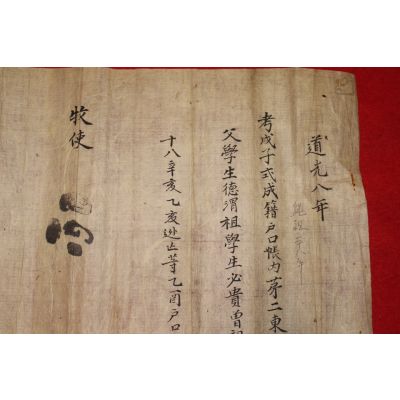 道光八年
純祖二八年
考戊子式成籍戶口帳內第二東
父學生德渭祖學生必貴曾
十八辛亥乙亥迯亡等乙酉戶口
牧使